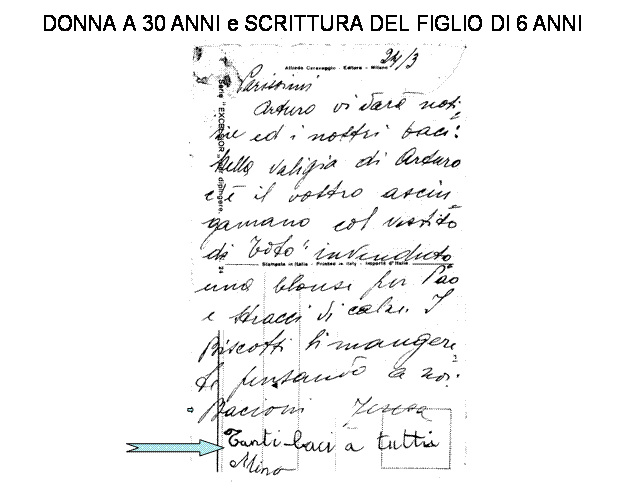 DONNA A 30 ANNI e SCRITTURA DEL FIGLIO DI 6 ANNI
24/3
Alfredo Caravaggio - Editore - Milano
Serie "EXCELSIOR" per dipingere.
Carissimi
Arturo vi darà noti
zie ed i nostri baci.
Nella valigia di Arturo
c'è il vostro asciu
gamano col vestito
di "Totò" invenduto
Stampata in Italia - Printed in Italy - Importé d'Italie
24
una blouse per Pao
e stracci di calze. I
Biscotti li mangere
te pensando a noi.
Bacioni Teresa
Tanti baci a tutti
Mino